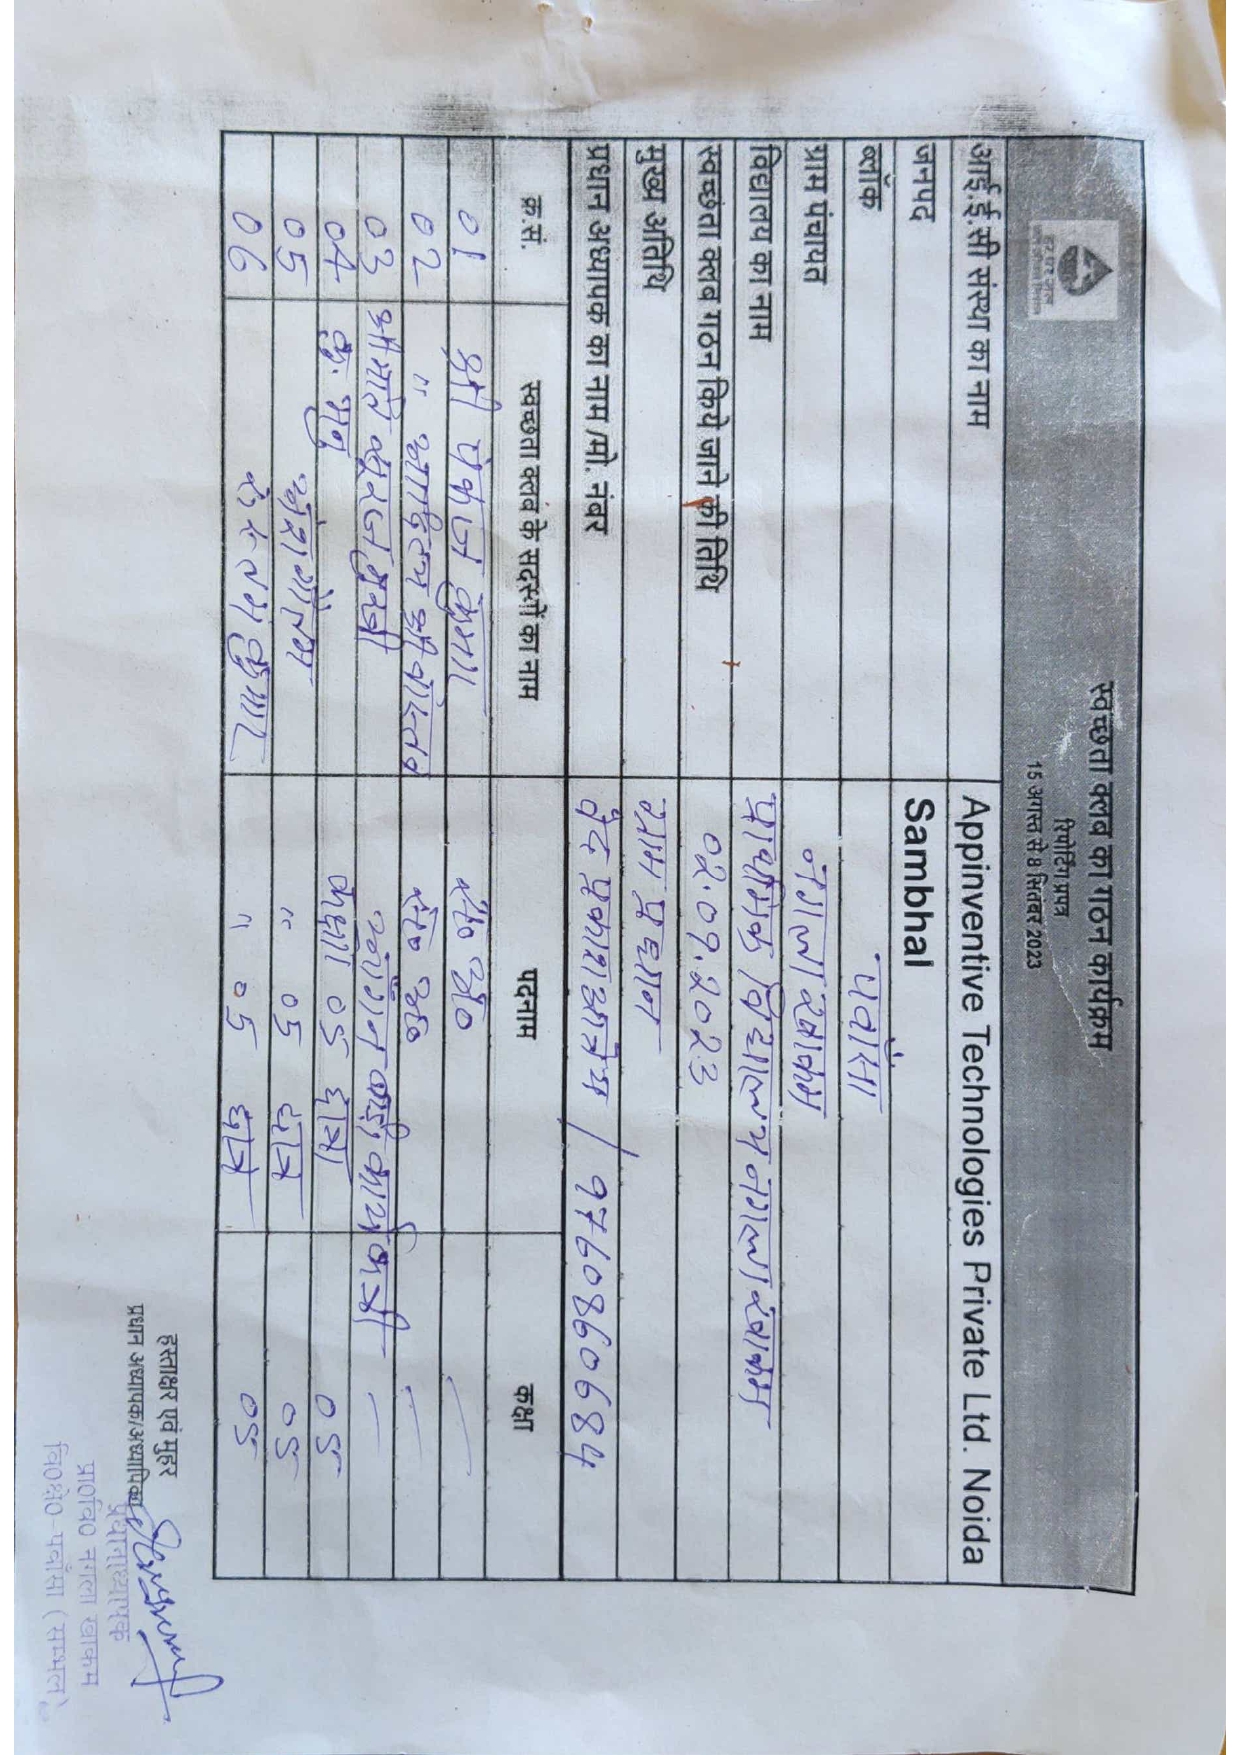 स्वच्छता क्लब का गठन कार्यक्रम
रिपोर्टिंग प्रपत्र
15 अगस्त से 8 सितंबर 2023
हर घर जल
जल जीवन मिशन
आई.ई.सी संस्था का नाम Appinventive Technologies Private Ltd. Noida
जनपद Sambhal
ब्लॉक पवाँसा
ग्राम पंचायत नगला खाकम
विद्यालय का नाम प्राथमिक विद्यालय नगला खाकम
स्वच्छता क्लब गठन किये जाने की तिथि 02.09.2023
मुख्य अतिथि ग्राम प्रधान
प्रधान अध्यापक का नाम /मो. नंबर वेद प्रकाश आत्रेय / 9760860684
क्र.सं. स्वच्छता क्लब के सदस्यों का नाम पदनाम कक्षा
01 श्री पंकज कुमार स०अ० —
02 " आदित्य श्रीवास्तव स०अ० —
03 श्रीमति आँगन बाड़ी कार्यकत्री —
04 कु. मधु कक्षा 05 छात्रा 05
05 अंश गौतम " 05 छात्र 05
06 कुमार " 05 छात्र 05
हस्ताक्षर एवं मुहर
प्रधान अध्यापक/अध्यापिका
प्रधानाध्यापक
प्रा०वि० नगला खाकम
वि०क्षे०-पवाँसा (सम्भल)